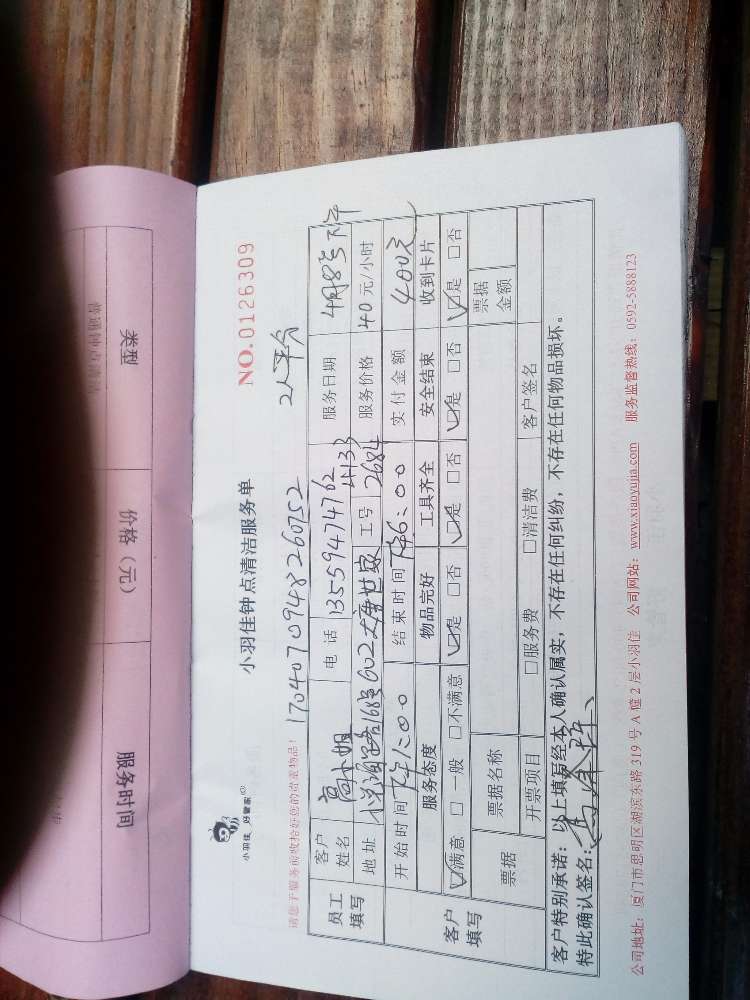 类型
价格（元）
服务时间
小羽佳 好管家
小羽佳钟点清洁服务单
NO.0126309
请您于服务前收拾好您的贵重物品！
17040709482607​52
2人平分
员工填写
客户姓名 高小姐 电话 13559474762 服务日期 4月8号下午
地址 168号602大唐世家 工号 4133 2684 服务价格 40元/小时
开始时间 下午1:00 结束时间 下午6:00 实付金额 400元
客户填写
服务态度 物品完好 工具齐全 安全结束 收到卡片
☑满意 □一般 □不满意 ☑是 □否 ☑是 □否 ☑是 □否 ☑是 □否
票据 票据名称 票据金额
开票项目 □服务费 □清洁费 客户签名
客户特别承诺：以上填写经本人确认属实，不存在任何纠纷，不存在任何物品损坏。
特此确认签名：
公司地址：厦门市思明区湖滨东路319号A幢2层小羽佳 公司网站：www.xiaoyujia.com 服务监督热线：0592-5888123